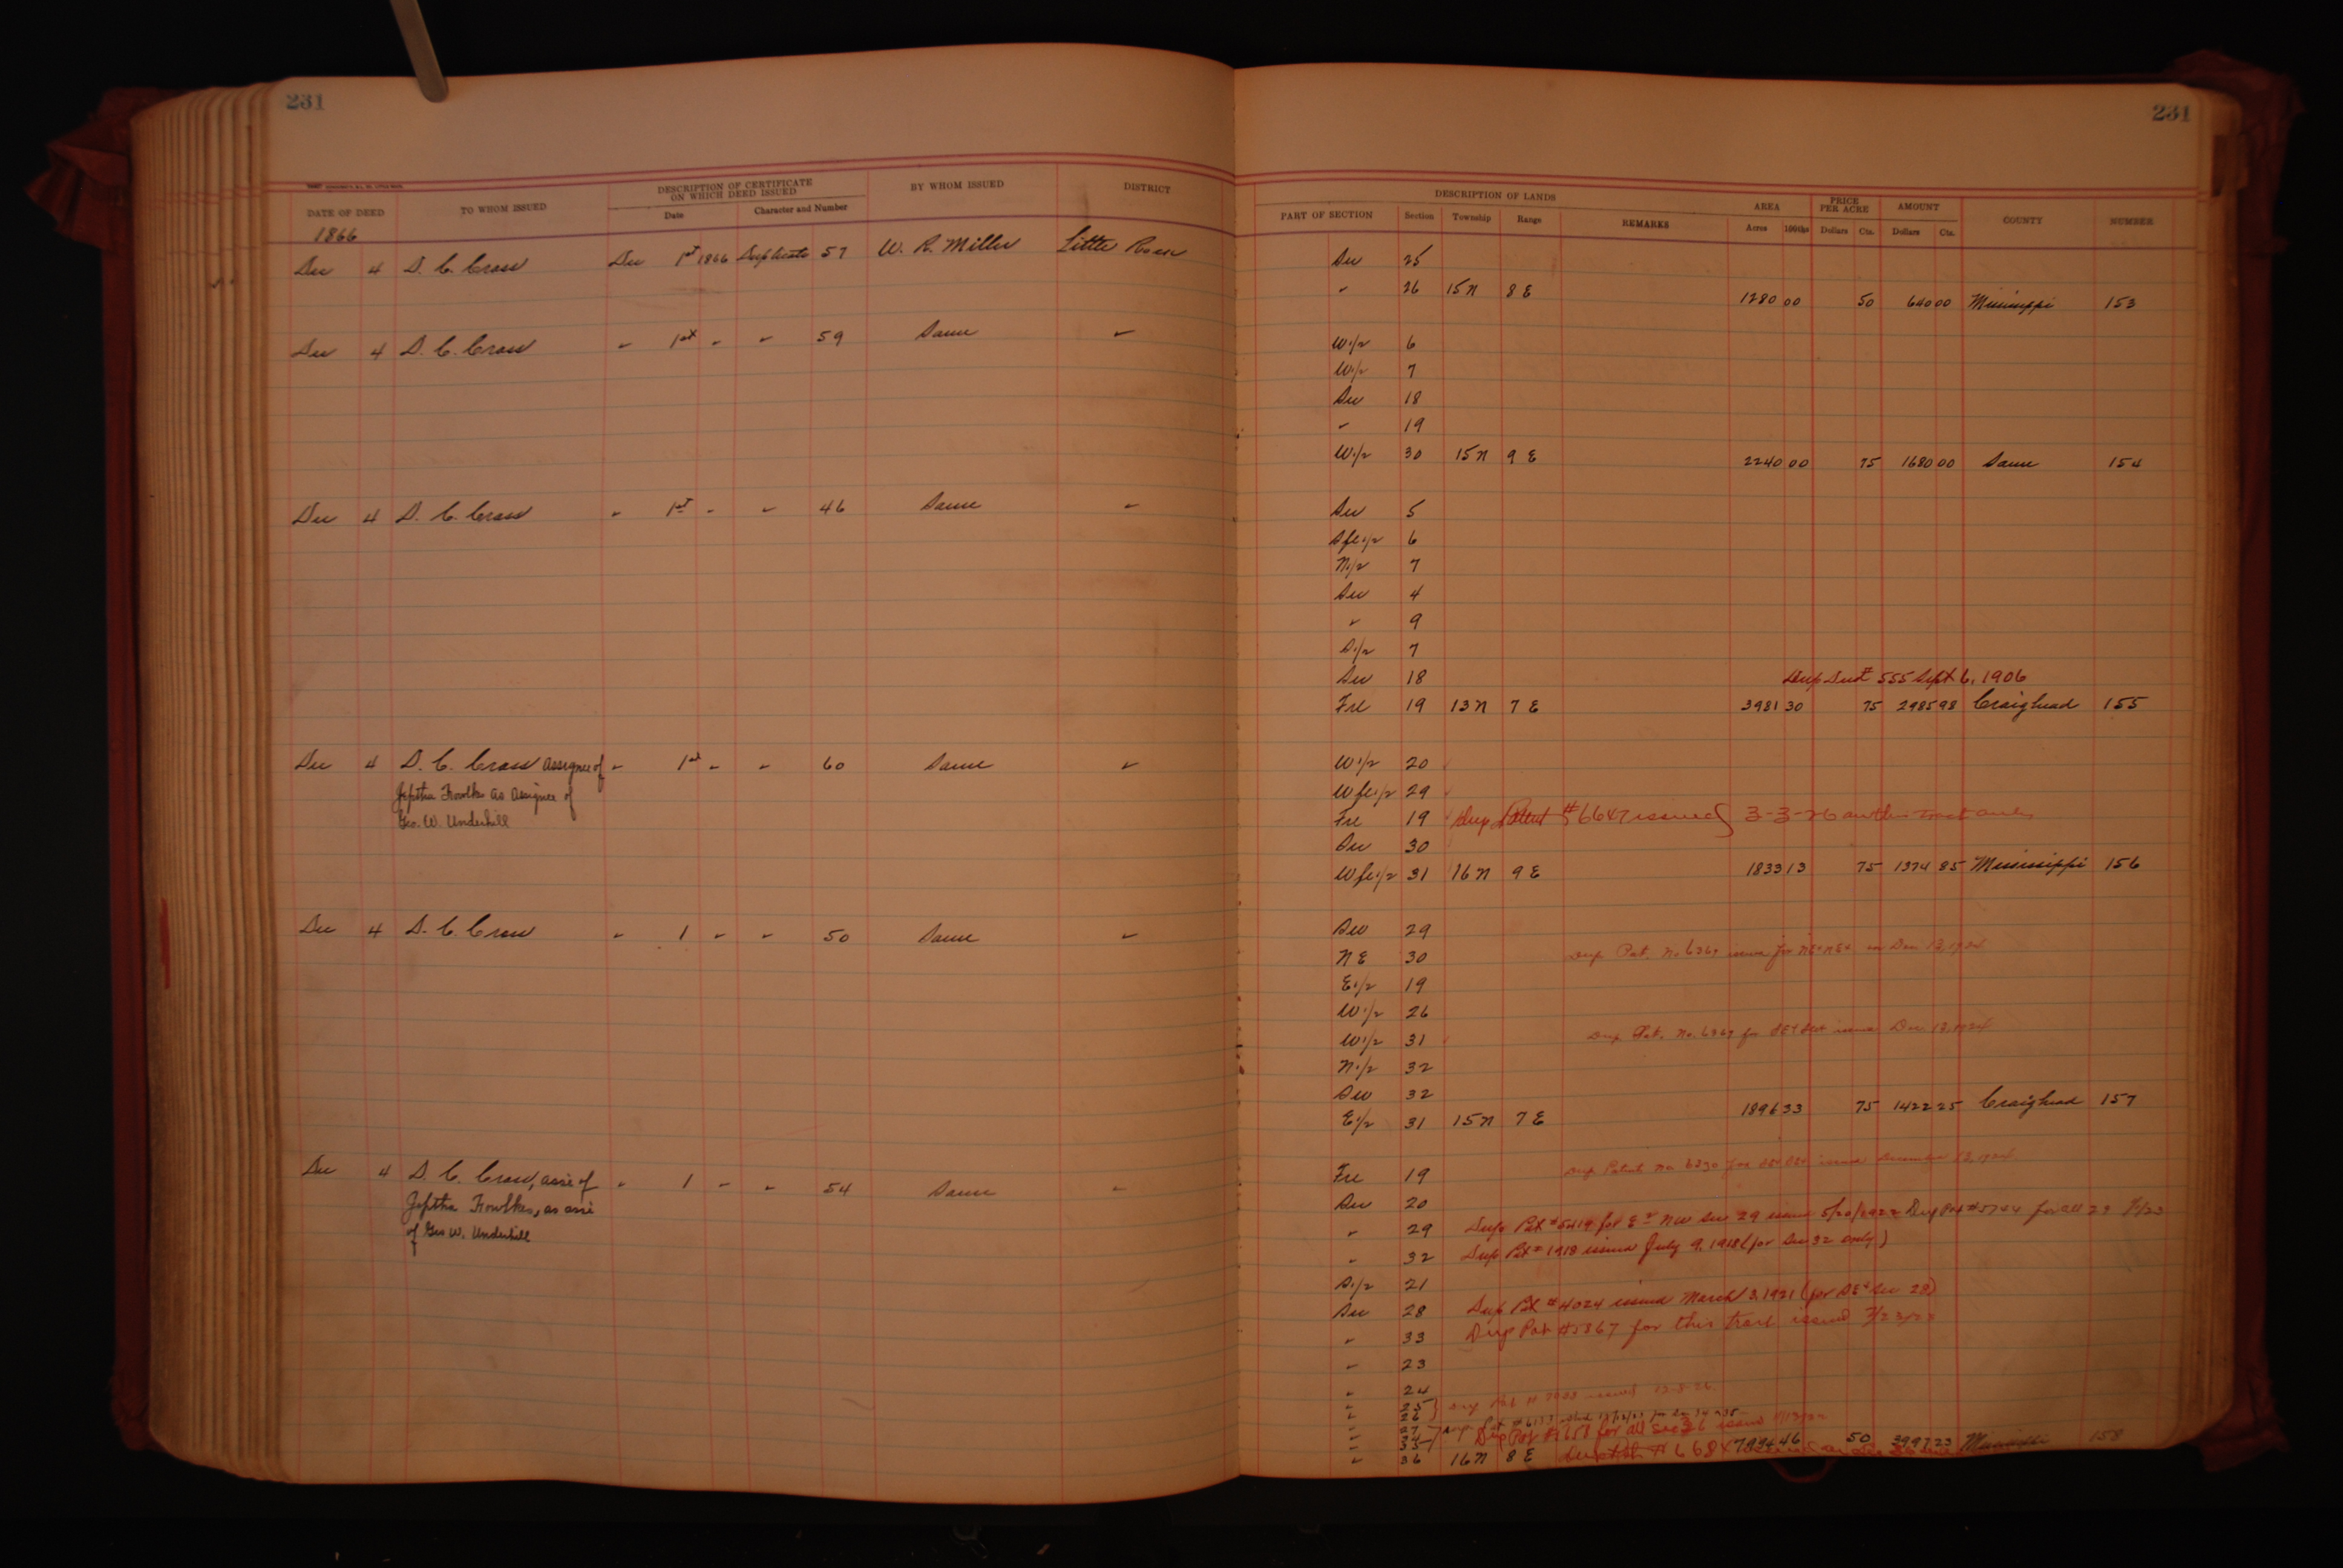 231
231
DESCRIPTION OF CERTIFICATE ON WHICH DEED ISSUED
BY WHOM ISSUED DISTRICT DESCRIPTION OF LANDS AREA PRICE PER ACRE AMOUNT
DATE OF DEED TO WHOM ISSUED Date Character and Number PART OF SECTION Section Township Range REMARKS Acres 100ths Dollars Cts. Dollars Cts. COUNTY NUMBER
1866
Dec 4 D. C. Cross Dec 1st 1866 Duplicate 57 W. R. Miller Little Rock Sec 25
" 26 15 N 8 E 1280 00 50 640 00 Mississippi 153
Dec 4 D. C. Cross " 1st " " 59 Same " W 1/2 6
W 1/2 7
Sec 18
" 19
W 1/2 30 15 N 9 E 2240 00 75 1680 00 Same 154
Dec 4 D. C. Cross " 1st " " 46 Same " Sec 5
S fr 1/2 6
N 1/2 7
Sec 4
" 9
S 1/2 7
Sec 18 555 Sept 6, 1906
Frl 19 13 N 7 E 3981 30 75 2985 98 Craighead 155
Dec 4 D. C. Cross assignee of " 1st " " 60 Same " W 1/2 20
Jeptha Fowlkes as assignee of W fr 1/2 29
Geo. W. Underhill Frl 19 Dup Patent #6647 issued 3-3-26 on this tract only
Sec 30
W fr 1/2 31 16 N 9 E 1833 13 75 1374 85 Mississippi 156
Dec 4 D. C. Cross " 1 " " 50 Same " 29
NE 30 Dup Pat. No 6369 issue for NE4 NE4 on Dec 12, 1924
E 1/2 19
W 1/2 26
W 1/2 31 Dup Pat. No. 6369 for issued Dec. 12, 1924
N 1/2 32
32
E 1/2 31 15 N 7 E 1896 33 75 1422 25 Craighead 157
Dec 4 D. C. Cross, assé of " 1 " " 54 Same " Frl 19 Dup Patent No issued December 12, 1924
Jeptha Fowlkes, as assé Sec 20
of Geo W. Underhill " 29 Dup Pat #5419 for Sec 29 issued 5/20/1922 Dup Pat for all 29
" 32 Dup Pat # 1918 issued July 9, 1918 (for Sec 32 only)
S 1/2 21
Sec 28 Dup Pat #4024 issued March 3, 1921 (for SE4 Sec 28)
" 33 Dup Pat #5367 for this tract issued
" 23
" 24
" 25 Dup Pat issued
" 26
" 27
" 34
" 35 Dup Pat for all Sec 36 issued
" 36 16 N 8 E 46 50 3997 23 Mississippi 158